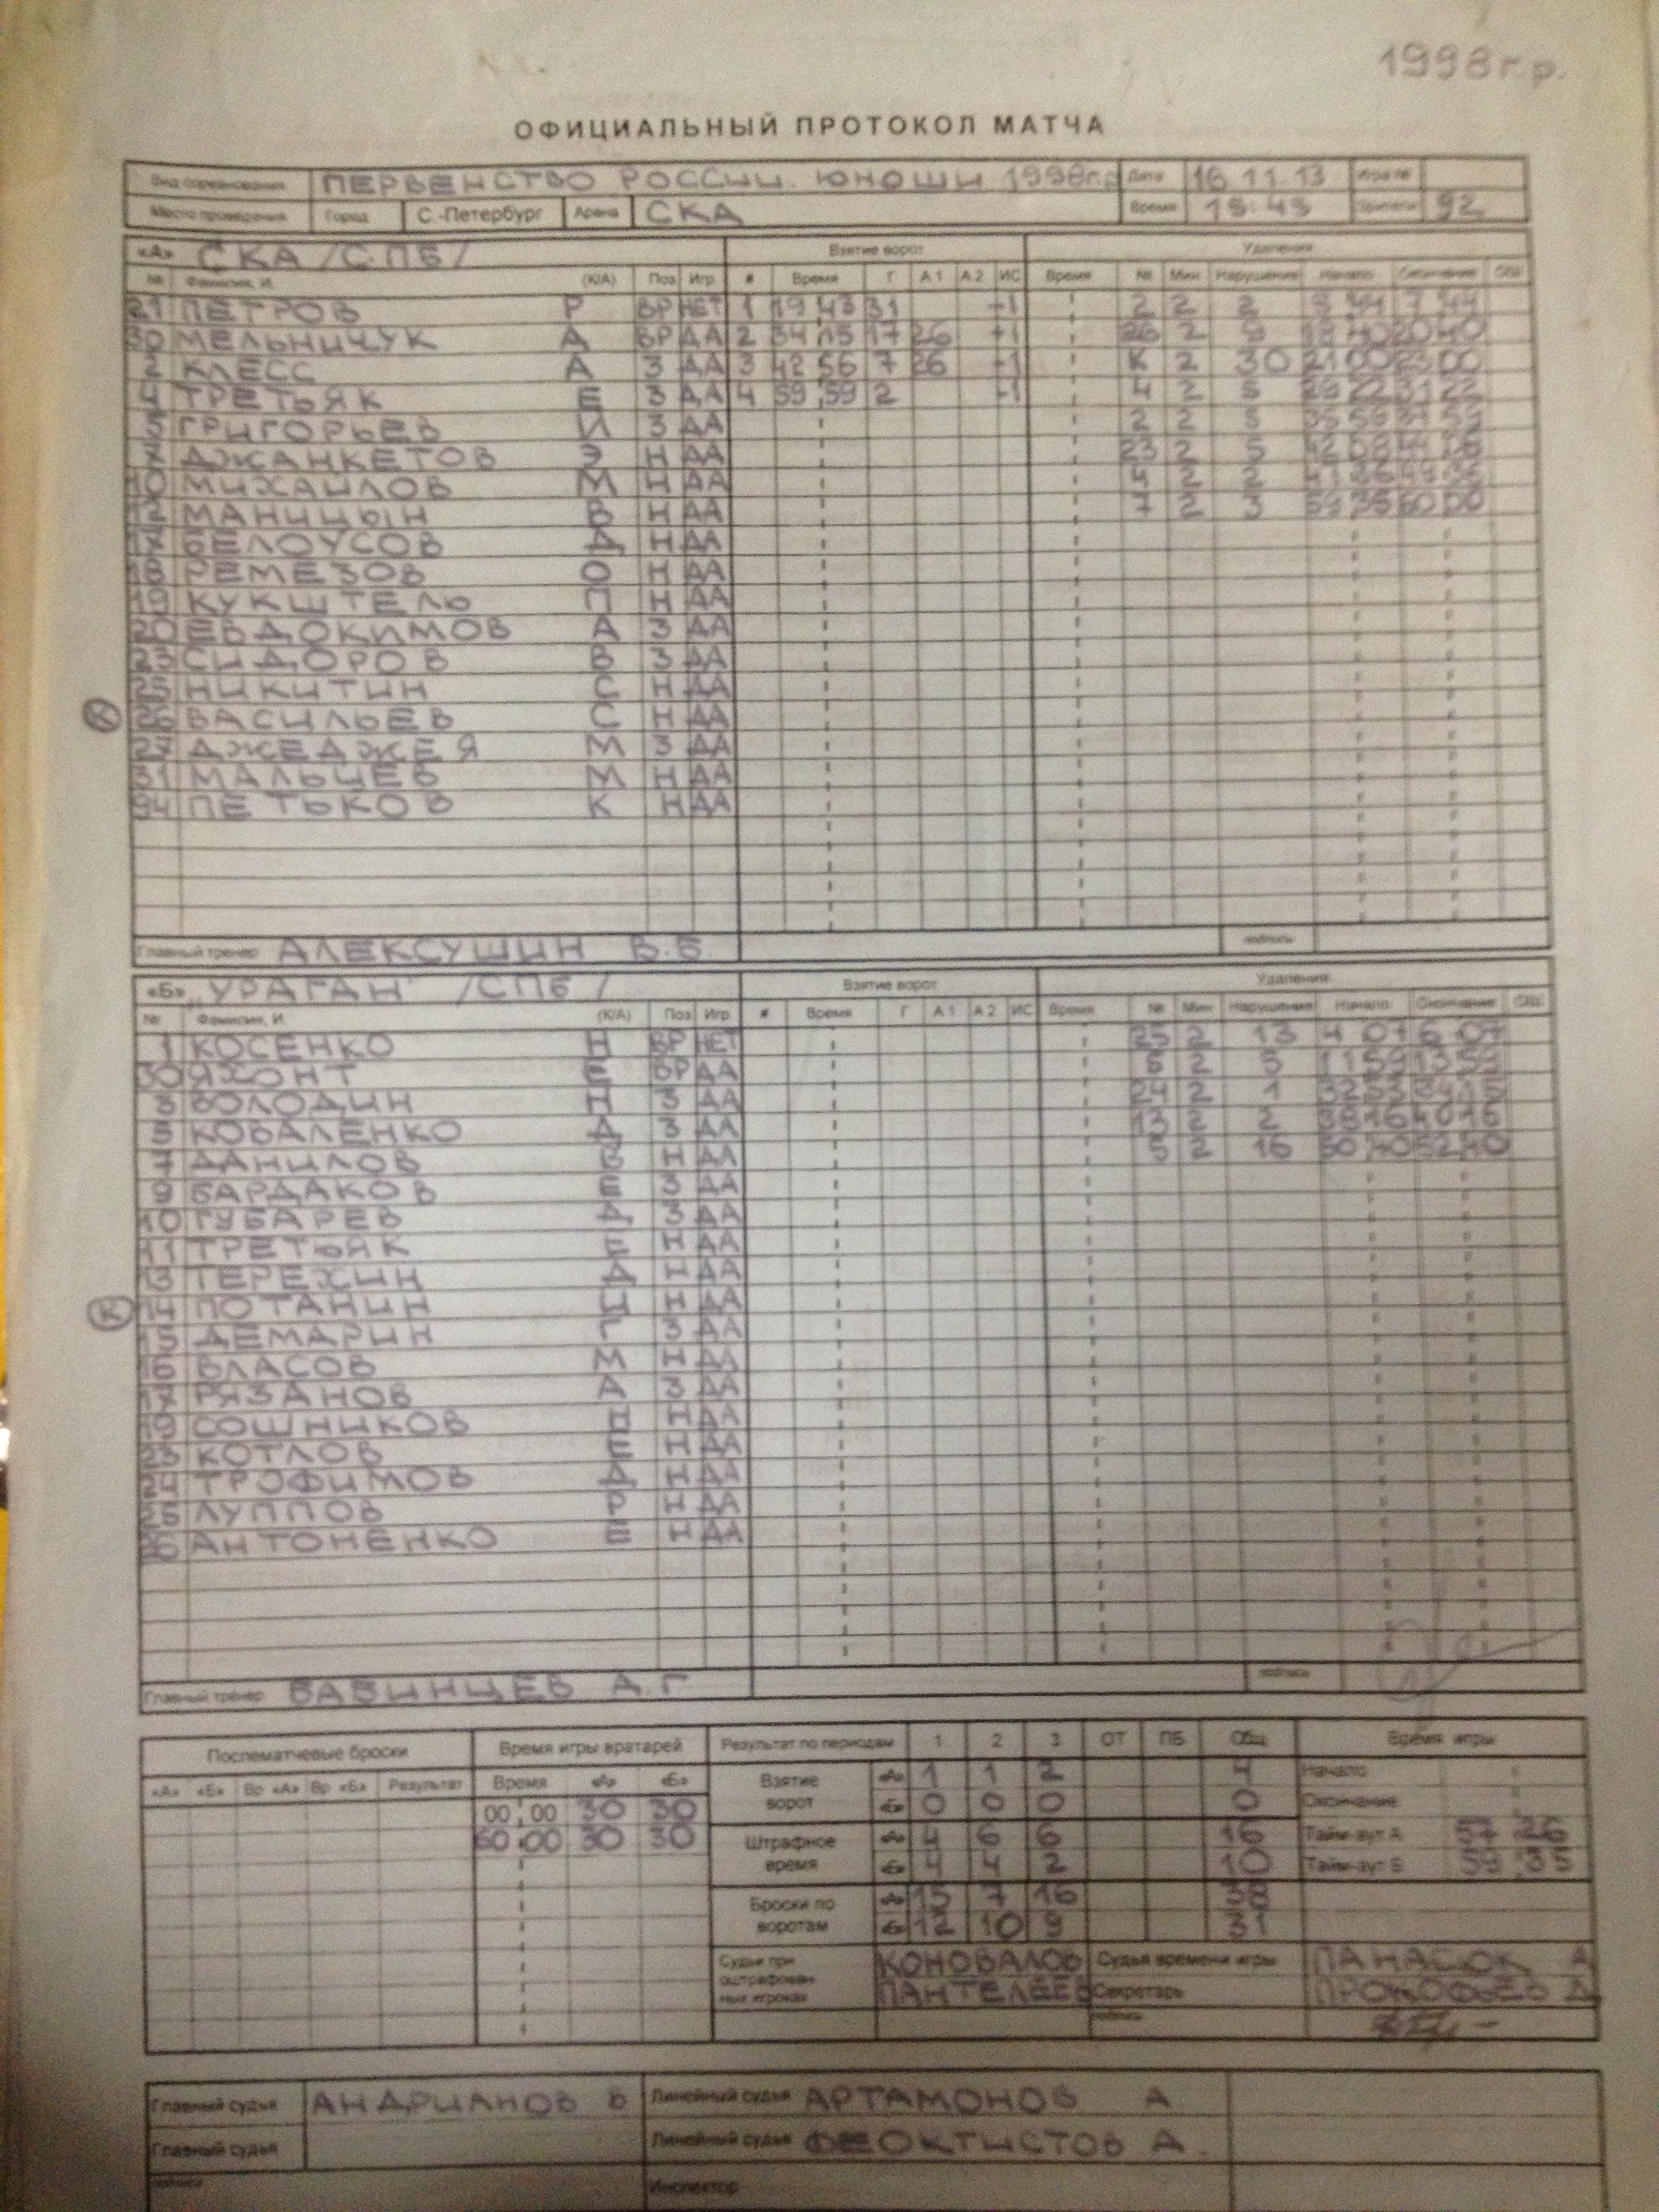 1998г.р.
ОФИЦИАЛЬНЫЙ ПРОТОКОЛ МАТЧА
Вид соревнования ПЕРВЕНСТВО РОССИИ. ЮНОШИ 1998г.р Дата 16 11 13 Игра №
Место проведения Город С.-Петербург Арена СКА Время Зрители 92
«А» СКА /С.ПБ/ Взятие ворот Удаления
№ Фамилия, И. (К/А) Поз Игр # Время Г А1 А2 ИС Время № Мин Нарушение Начало Окончание
21 ПЕТРОВ Р ВР НЕТ 1 19 43 31 +1 2 2 2 5 44 7 44
30 МЕЛЬНИЧУК А ВР ДА 2 34 15 17 26 +1 26 2 9 18 40 20 40
2 КЛЕСС А З ДА 3 42 56 7 26 К 2 30 21 00 23 00
4 ТРЕТЬЯК Е З ДА 4 59 59 2 4 2 5 29 22 31 22
5 ГРИГОРЬЕВ И З ДА 2 2 5
7 ДЖАНКЕТОВ Э Н ДА 23 2 5
10 МИХАЙЛОВ М Н ДА 4 2 2
12 МАНИЦЫН В Н ДА 7 2 3 59 35 60 00
17 БЕЛОУСОВ Д Н ДА
18 РЕМЕЗОВ О Н ДА
19 КУКШТЕЛЬ П Н ДА
20 ЕВДОКИМОВ А З ДА
23 СИДОРОВ В З ДА
25 НИКИТИН С Н ДА
К 26 ВАСИЛЬЕВ С Н ДА
27 ДЖЕДЖЕЯ М З ДА
31 МАЛЬЦЕВ М Н ДА
94 ПЕТЬКОВ К Н ДА
Главный тренер АЛЕКСУШИН В.Б. подпись
«Б» „УРАГАН" /СПБ/ Взятие ворот Удаления
№ Фамилия, И. (К/А) Поз Игр # Время Г А1 А2 ИС Время № Мин Нарушение Начало Окончание
1 КОСЕНКО Н ВР НЕТ 25 2 13 4 07 6 07
30 ЯХОНТ Е ВР ДА 5 2 5 11 59 13 59
3 ВОЛОДИН Н З ДА 24 2 1 34 15
5 КОВАЛЕНКО Д З ДА 13 2 2 38 16 40 16
7 ДАНИЛОВ В Н ДА 5 2 16 50 40 52 40
9 БАРДАКОВ Е З ДА
10 ГУБАРЕВ Д З ДА
11 ТРЕТЬЯК Е Н ДА
13 ТЕРЕХИН Д Н ДА
К 14 ПОТАНИН И Н ДА
15 ДЕМАРИН Г З ДА
16 ВЛАСОВ М Н ДА
17 РЯЗАНОВ А З ДА
19 СОШНИКОВ Н Н ДА
23 КОТЛОВ Е Н ДА
24 ТРОФИМОВ Д Н ДА
25 ЛУППОВ Р Н ДА
АНТОНЕНКО Е Н ДА
Главный тренер БАБИНЦЕВ А.Г подпись
Послематчевые броски Время игры вратарей Результат по периодам 1 2 3 ОТ ПБ Общ Время игры
«А» «Б» Вр «А» Вр «Б» Результат Время «А» «Б» Взятие ворот «А» 1 1 2 4 Начало
00 00 30 30 «Б» 0 0 0 0 Окончание
60 00 30 30 Штрафное время «А» 4 6 6 16 Тайм-аут А 57 26
«Б» 4 4 2 10 Тайм-аут Б 59 35
Броски по воротам «А» 15 7 16 38
«Б» 12 10 9 31
Судьи при оштрафованных игроках КОНОВАЛОВ Судья времени игры ПАНАСЮК А
ПАНТЕЛЕЕВ Секретарь ПРОКОФЬЕВ Д
подпись
Главный судья АНДРИАНОВ В Линейный судья АРТАМОНОВ А
Главный судья Линейный судья ФЕОКТИСТОВ А.
подпись Инспектор